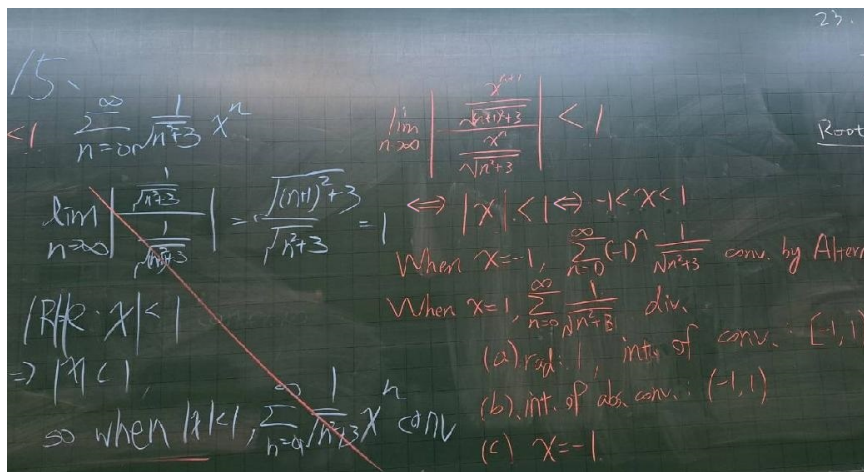 23.
15、
<1 \sum_{n=0}^{\infty} \frac{1}{\sqrt{n^2+3}} x^n
\lim_{n\to\infty} \left| \frac{\frac{1}{\sqrt{n^2+3}}}{\frac{1}{\sqrt{(n+1)^2+3}}} \right| = \frac{\sqrt{(n+1)^2+3}}{\sqrt{n^2+3}} = 1
|x| < 1
=> |x| < 1,
so when |x|<1, \sum_{n=0}^{\infty} \frac{1}{\sqrt{n^2+3}} x^n conv
\lim_{n\to\infty} \left| \frac{\frac{x^{n+1}}{\sqrt{(n+1)^2+3}}}{\frac{x^n}{\sqrt{n^2+3}}} \right| < 1
⇔ |x| < 1 ⇔ -1 < x < 1
When x=-1, \sum_{n=0}^{\infty} (-1)^n \frac{1}{\sqrt{n^2+3}} conv. by Altern
When x=1, \sum_{n=0}^{\infty} \frac{1}{\sqrt{n^2+3}} div.
(a) rad: 1, int. of conv.: [-1,1)
(b) int. of abs. conv.: (-1,1)
(c) x=-1
Root